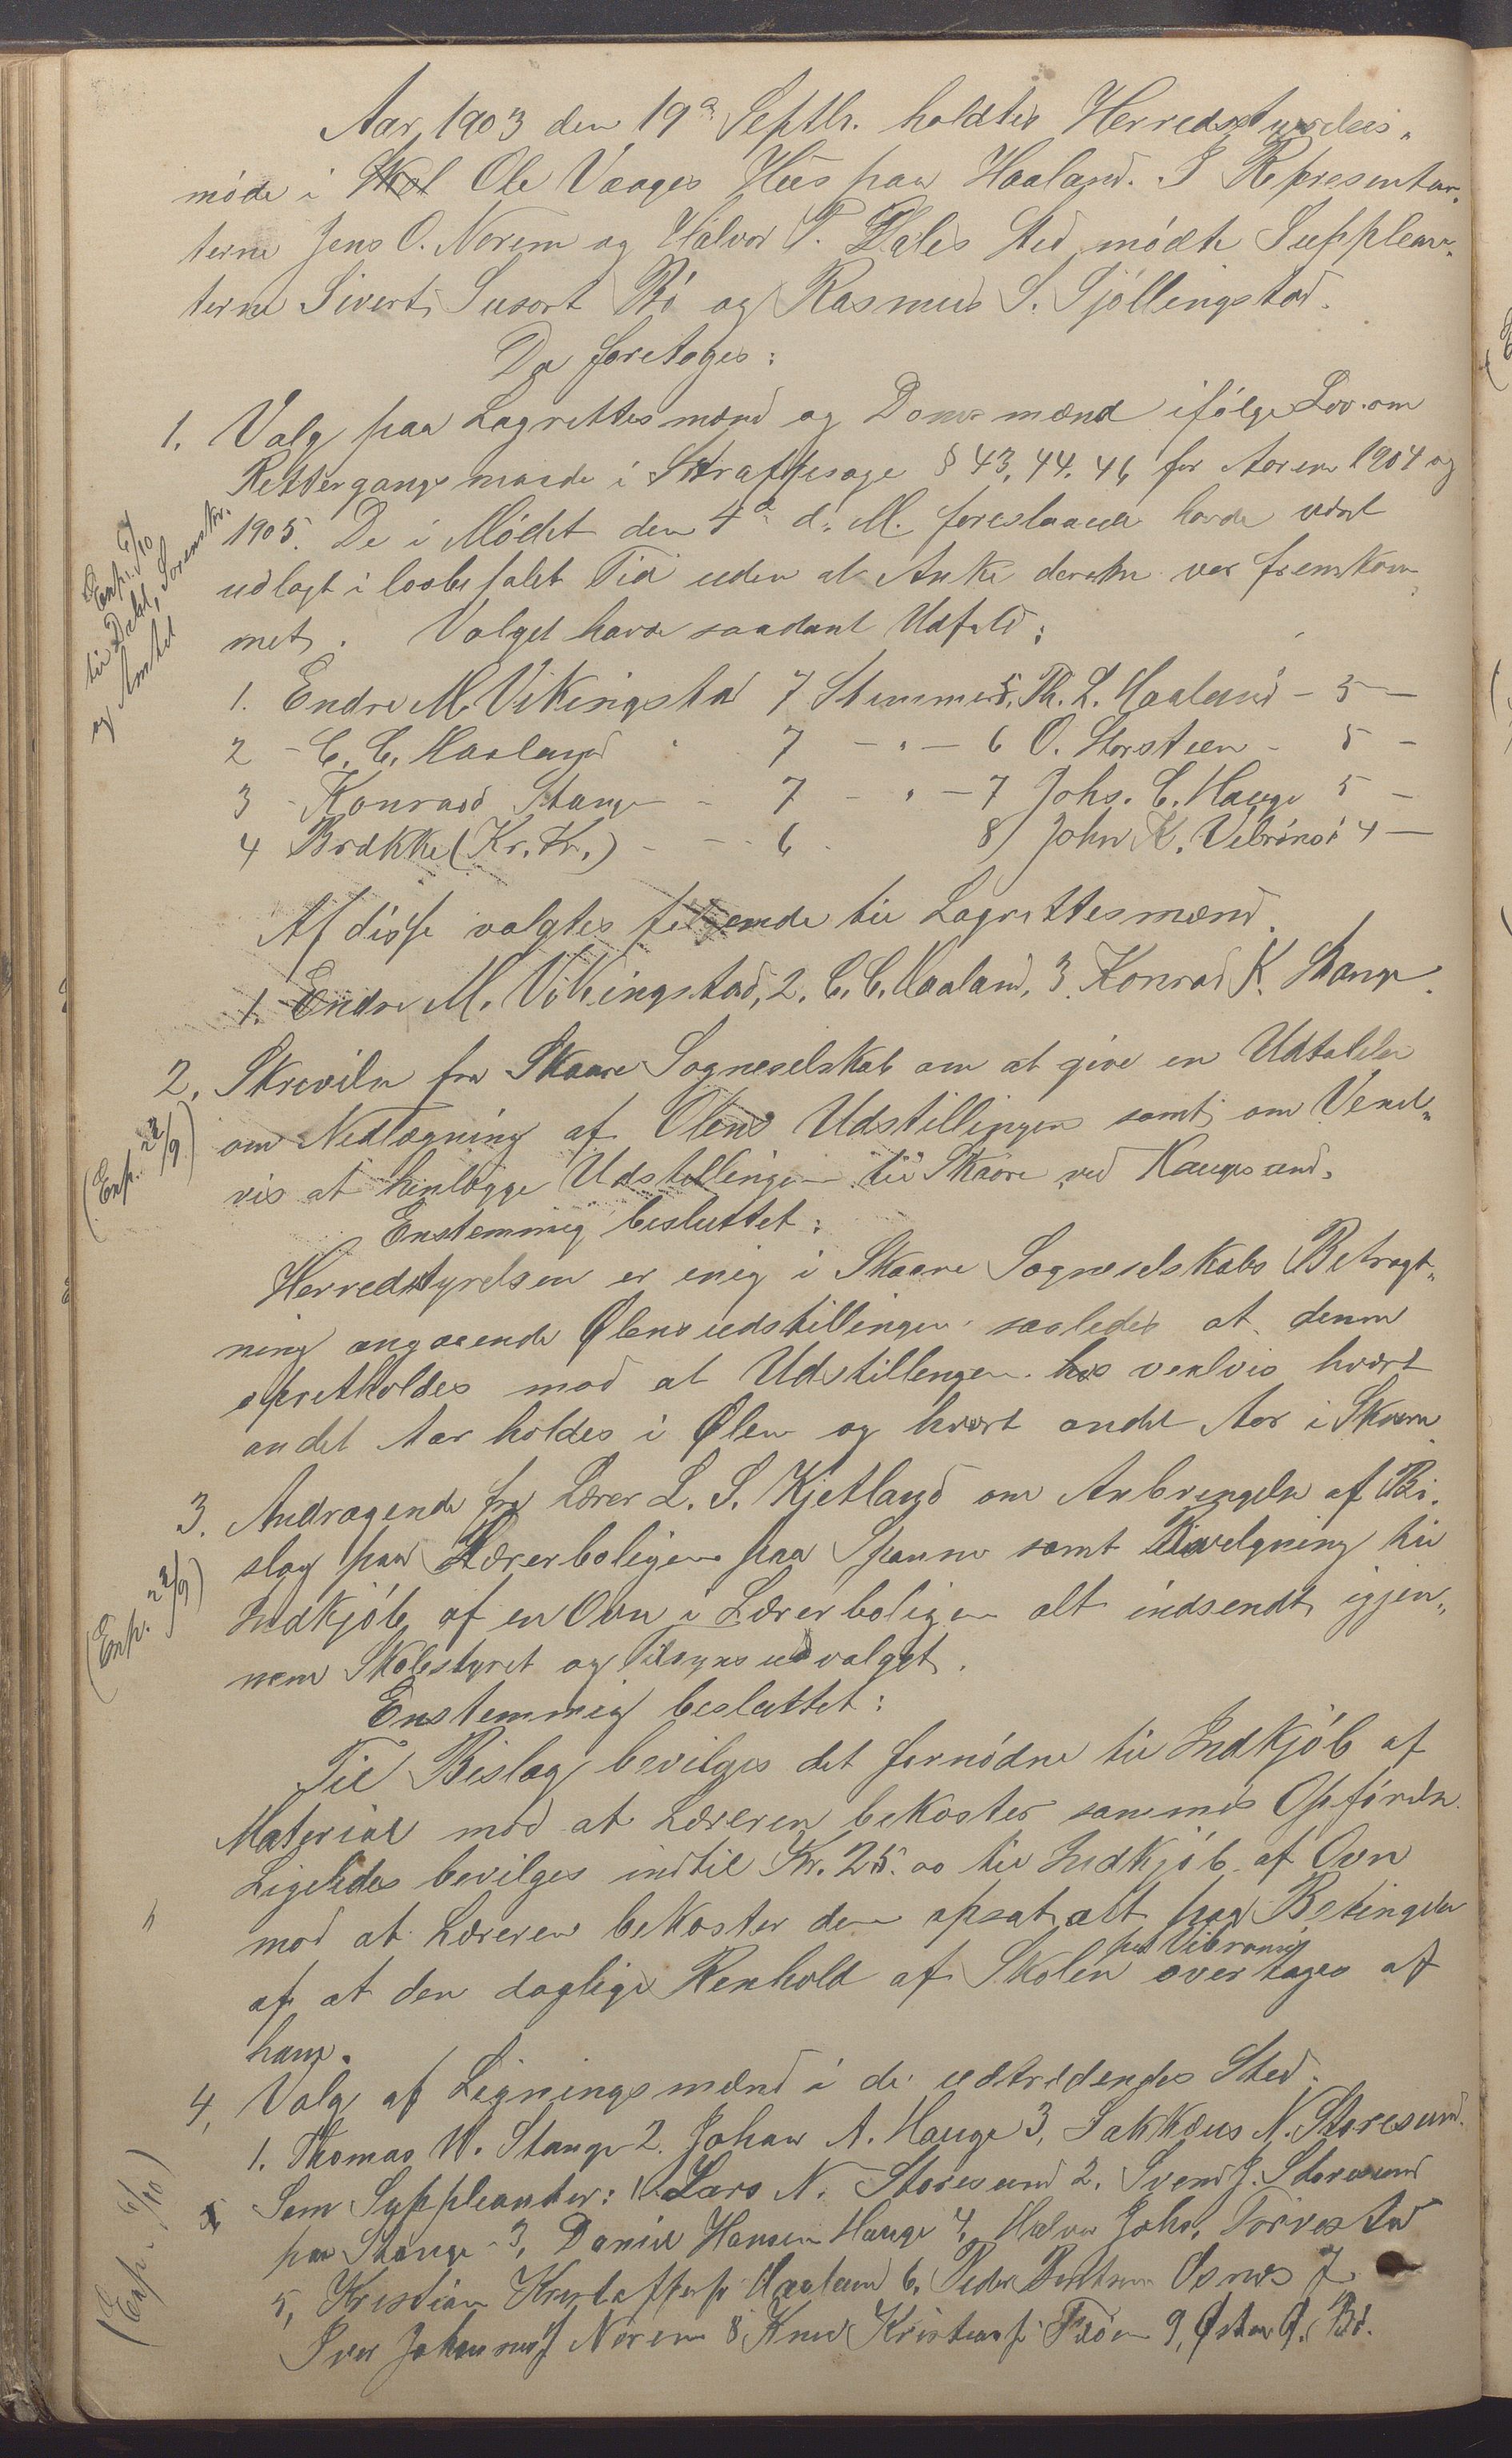 Aar 1903 den 19de Septbr. holdtes Herredsstyrelses-
møde i Ole Vaages Hus paa Haaland. I Representan-
terne Jens O. Norem og Halvor T. Dales Sted mødte Supplean-
terne Sivert Susort Bö og Rasmus S. Sjöllingstad.
Da foretoges:
1. Valg paa Lagrettesmænd og Domsmænd ifølge Lov om
Rettergangsmaade i Straffesage § 43, 44, 46 for Aarene 1904 og
1905. De i Mödet den 4de d. M. foreslaaede havde været
udlagt i lovbefalet Tid uden at Anke derover var fremkom-
met. Valget havde saadant Udfald:
Exp. 6/10
til Dalst, Sorenskr.
og Amtet
1. Endre M. Vikingstad 7 Stemmer 5. Th. L. Haaland - 5 -
2 - C. C. Haaland 7 - " - 6 O. Storsteen - 5 -
3 - Konrad Stange - 7 - " - 7 Johs. C. Hauge 5 -
4 Brække (Kr. Kr.) - - 6 8) John K. Vibrinsö 4 -
Af disse valgtes følgende til Lagrettesmænd
1. Endre M. Vikingstad, 2. C. C. Haaland, 3. Konrad K. Stange.
2. Skrivelse fra Skaare Sogneselskab om at give en Udtalelse
om Nedlægning af Ølens Udstillingen samt om Vexel-
vis at henlægge Udstillingen til Skaare ved Haugesund.
(Exp. 22/9)
Enstemmig besluttet:
Herredstyrelsen er enig i Skaare Sogneselskabs Betragt-
ning angaaende Ølensudstillingen saaledes at denne
opretholdes mod at Udstillingen vexlvis hvært
andet Aar holdes i Ølen og hvært andet Aar i Skaare.
3. Andragende fra Lærer L. S. Kjetland om Anbringelse af Bi-
slag paa Lærerboligen paa Spanne samt Bevilgning til
Indkjöb af en Ovn i Lærerboligen alt indsendt igjen-
nem Skolestyret og Tilsynsudvalget.
(Exp. 22/9)
Enstemmig besluttet:
Til Bislag bevilges det fornödne til Indkjöb af
Material mod at Læreren bekoster sammes Opförelse.
Ligeledes bevilges indtil Kr. 25.00 til Indkjöb af Ovn
mod at Læreren bekoster den opsat, alt paa Betingelse
af at den daglige Renhold af Skolen paa Vibransö overtages af
ham.
4. Valg af Ligningsmænd i de udtrædendes Sted.
1. Thomas W. Stange 2. Johan A. Hauge 3. Sakkæus N. Storesund.
Som Suppleanter: 1. Lars N. Storesund 2. Svend J. Storesund
paa Stange 3. Daniel Hansen Hauge 4. Halvor Johs. Torvestad
5. Kristian Kristoffersen Haaland 6. Peder Osnes 7.
Iver Johannes Norem 8. Knud Kristens. Fröen 9. Østen Ø. Bö.
(Exp. 6/10)